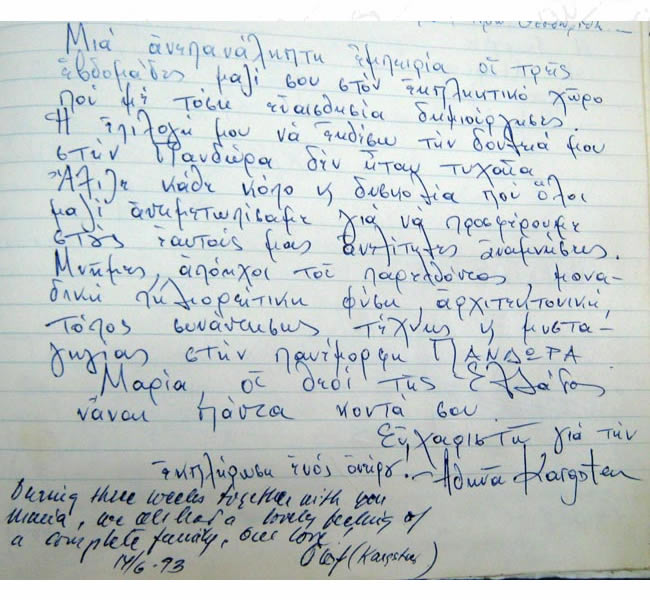 Μιά ἀνεπανάληπτη ἐμπειρία οἱ τρεῖς
ἑβδομάδες μαζί σου στόν ἐκπληκτικό χῶρο
πού μέ τόση εὐαισθησία δημιούργησες.
Ἡ ἐπιλογή μου νά ἐκθέσω τήν δουλειά μου
στήν Πανδώρα δέν ἦταν τυχαῖα
Ἄξιζε κάθε κόπο ἡ δυσκολία πού ὅλοι
μαζί ἀντιμετωπίσαμε γιά νά προσφέρουμε
στούς ἑαυτούς μας ἀνεξίτηλες ἀναμνήσεις.
Μνῆμες, ἀπόηχοι τοῦ παρελθόντος, μονα-
δική πηλιορείτικη φύση, ἀρχιτεκτονική,
τόπος συνάντησης τέχνης κ μυστα-
γωγίας στήν πανέμορφη ΠΑΝΔΩΡΑ
Μαρία, οἱ θεοί τῆς Ἑλλάδας
νἆναι πάντα κοντά σου.
Εὐχαριστῶ γιά τήν
ἐκπλήρωση ἑνός ὀνείρου.- Ἀθηνᾶ Kargsten
During three weeks together with you
Maria, we all had a lovely feeling of
a complete family, one love!
(Kargsten)
14/6-93